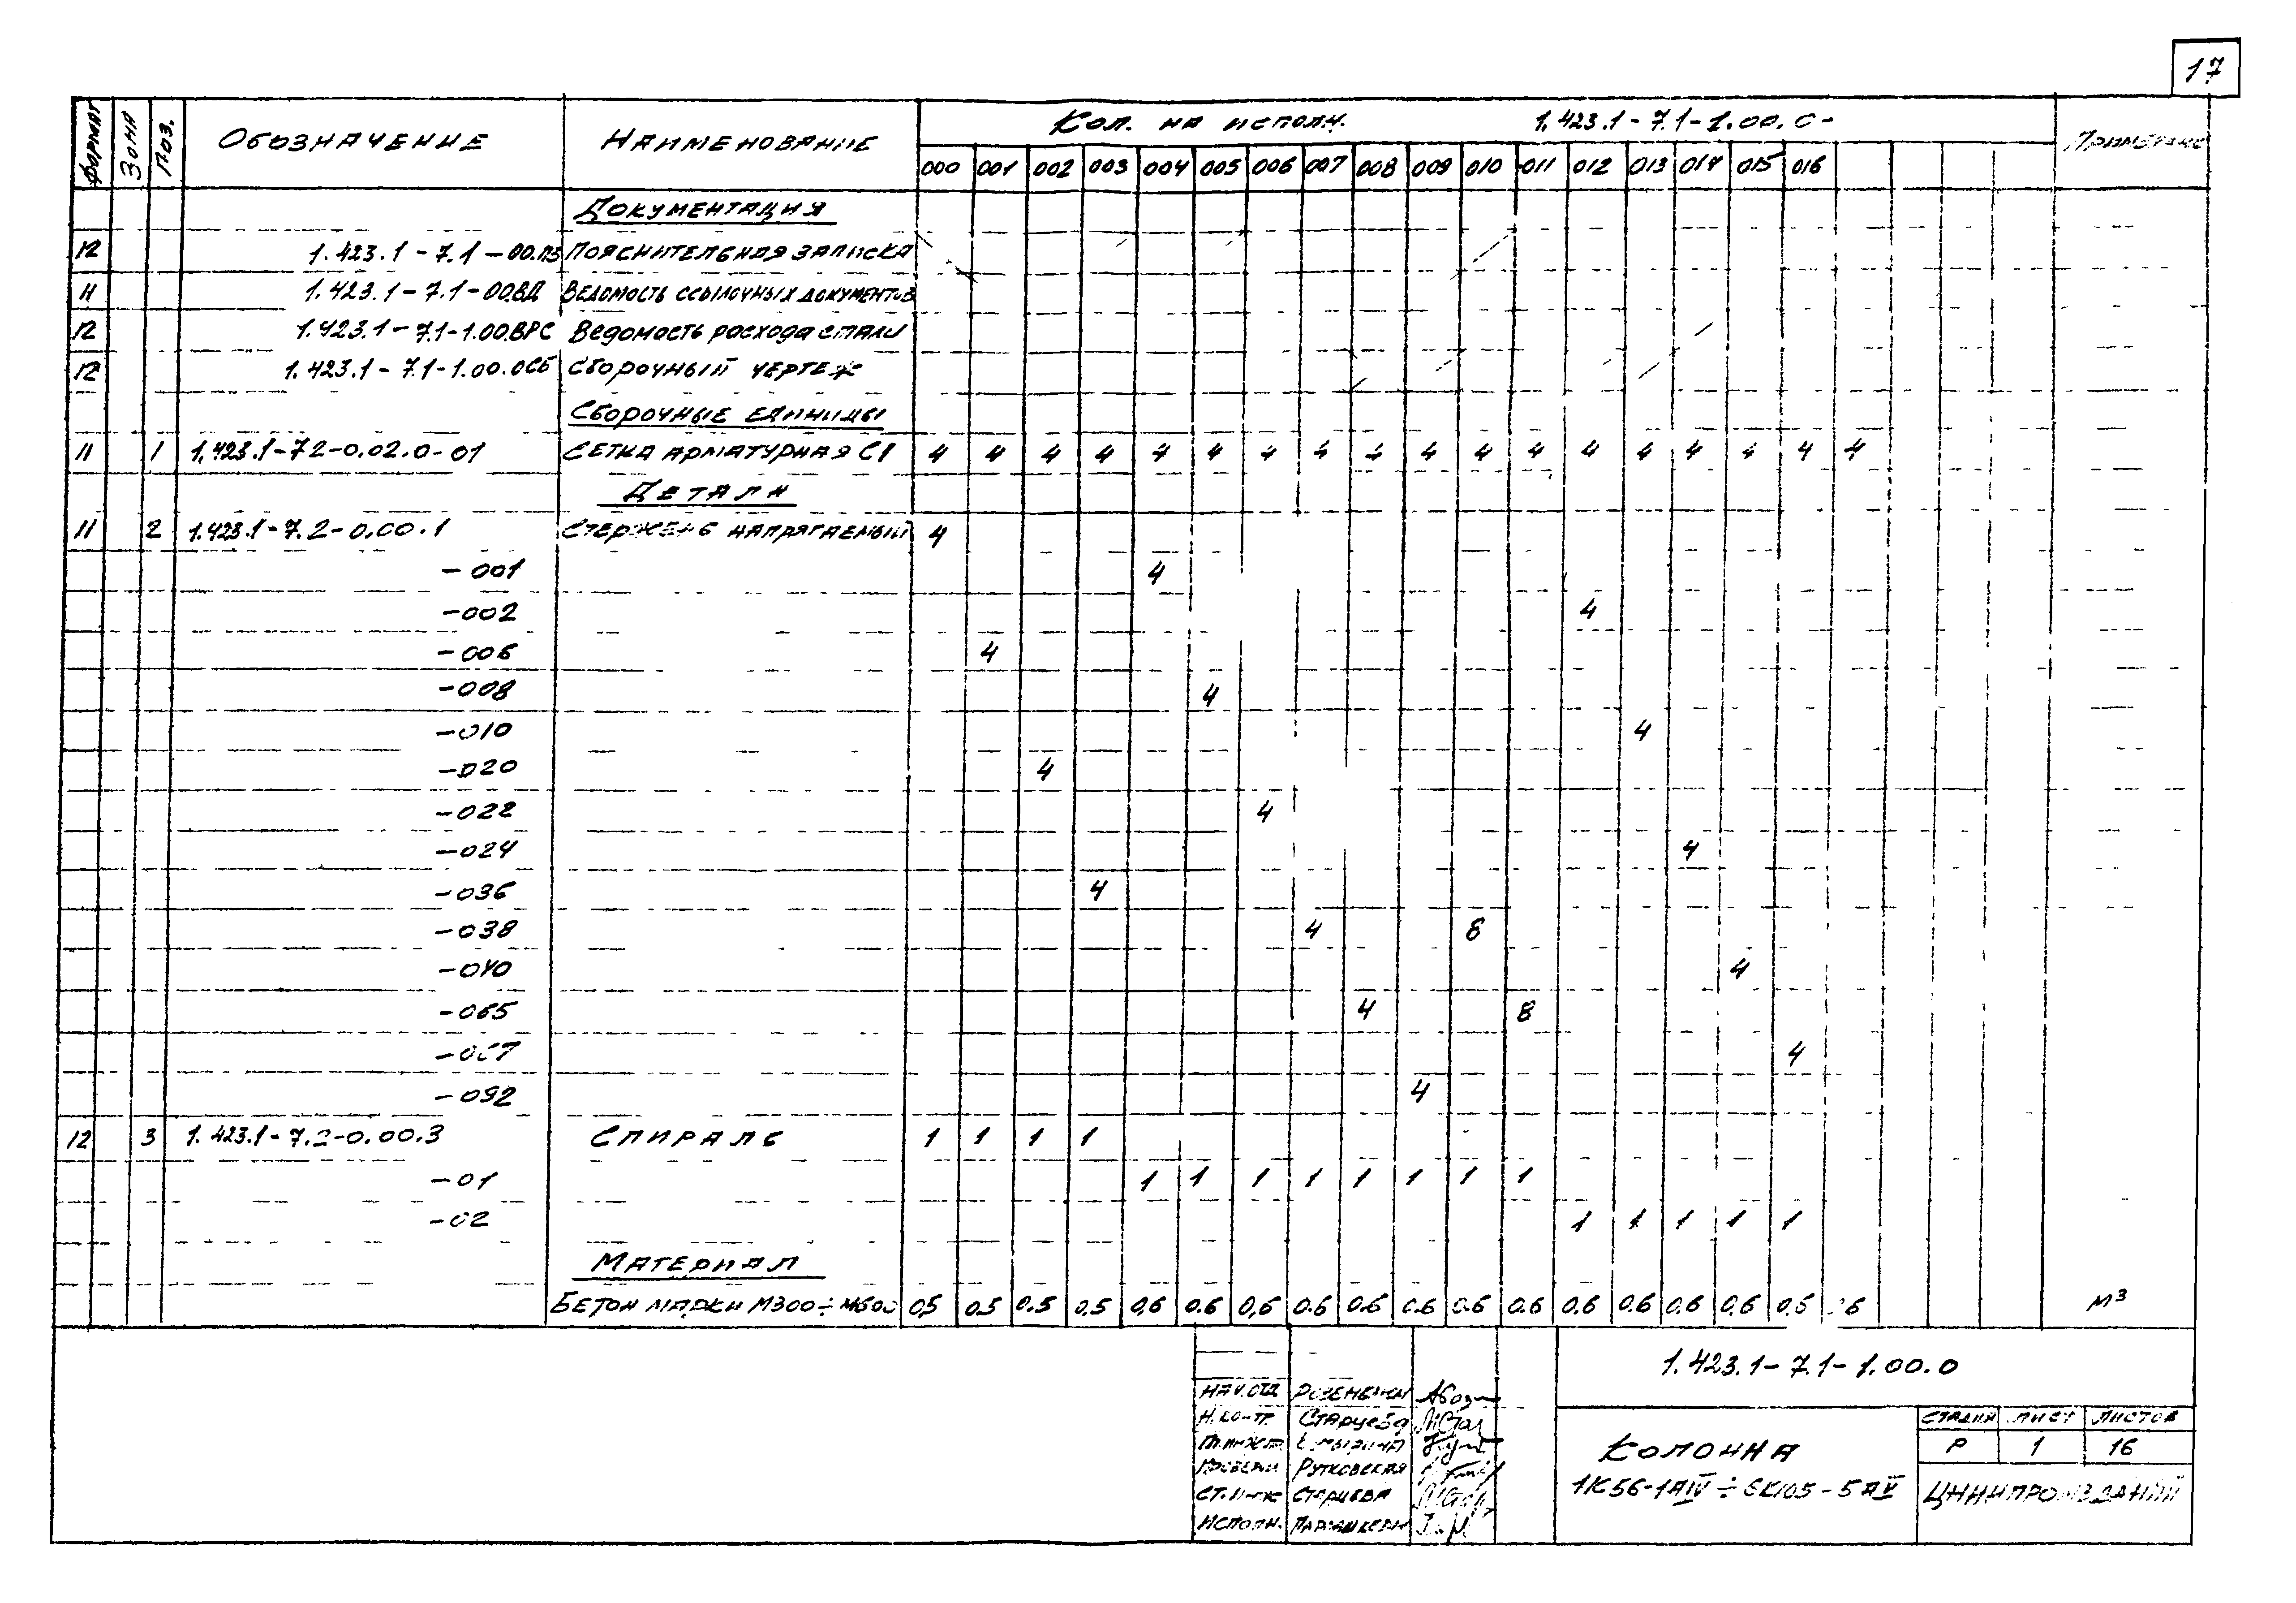 17
Формат Зона Поз. Обозначение Наименование Кол. на исполн. 1.423.1-7.1-1.00.0-
000 001 002 003 004 005 006 007 008 009 010 011 012 013 014 015 016
Документация
12 1.423.1-7.1-00.ПЗ Пояснительная записка
11 1.423.1-7.1-00.ВД Ведомость ссылочных документов
12 1.423.1-7.1-1.00.ВРС Ведомость расхода стали
12 1.423.1-7.1-1.00.0СБ Сборочный чертеж
Сборочные единицы
11 1 1.423.1-7.2-0.02.0-01 Сетка арматурная С1 4 4 4 4 4 4 4 4 4 4 4 4 4 4 4 4 4 4
Детали
11 2 1.423.1-7.2-0.00.1 Стержень напрягаемый 4
-001 4
-002 4
-006 4
-008 4
-010 4
-020 4
-022 4
-024 4
-036 4
-038 4 8
-040 4
-065 4 8
-067 4
-092 4
12 3 1.423.1-7.2-0.00.3 Спираль 1 1 1 1
-01 1 1 1 1 1 1 1 1
-02 1 1 1 1 1
Материал
Бетон марки М300÷М600 0,5 0.5 0.5 0.5 0,6 0.6 0,6 0.6 0.6 0.6 0.6 0.6 0.6 0.6 0.6 0.6 0.6 м³
1.423.1-7.1-1.00.0
Нач. отд.
Н. контр. Старцева
Проверил Рутковская
Ст. инж. Старцева
Исполн.
Колонна
1К56-1АIV÷6К105-5АV
Стадия Лист Листов
Р 1 16
ЦНИИПРОМЗДАНИЙ